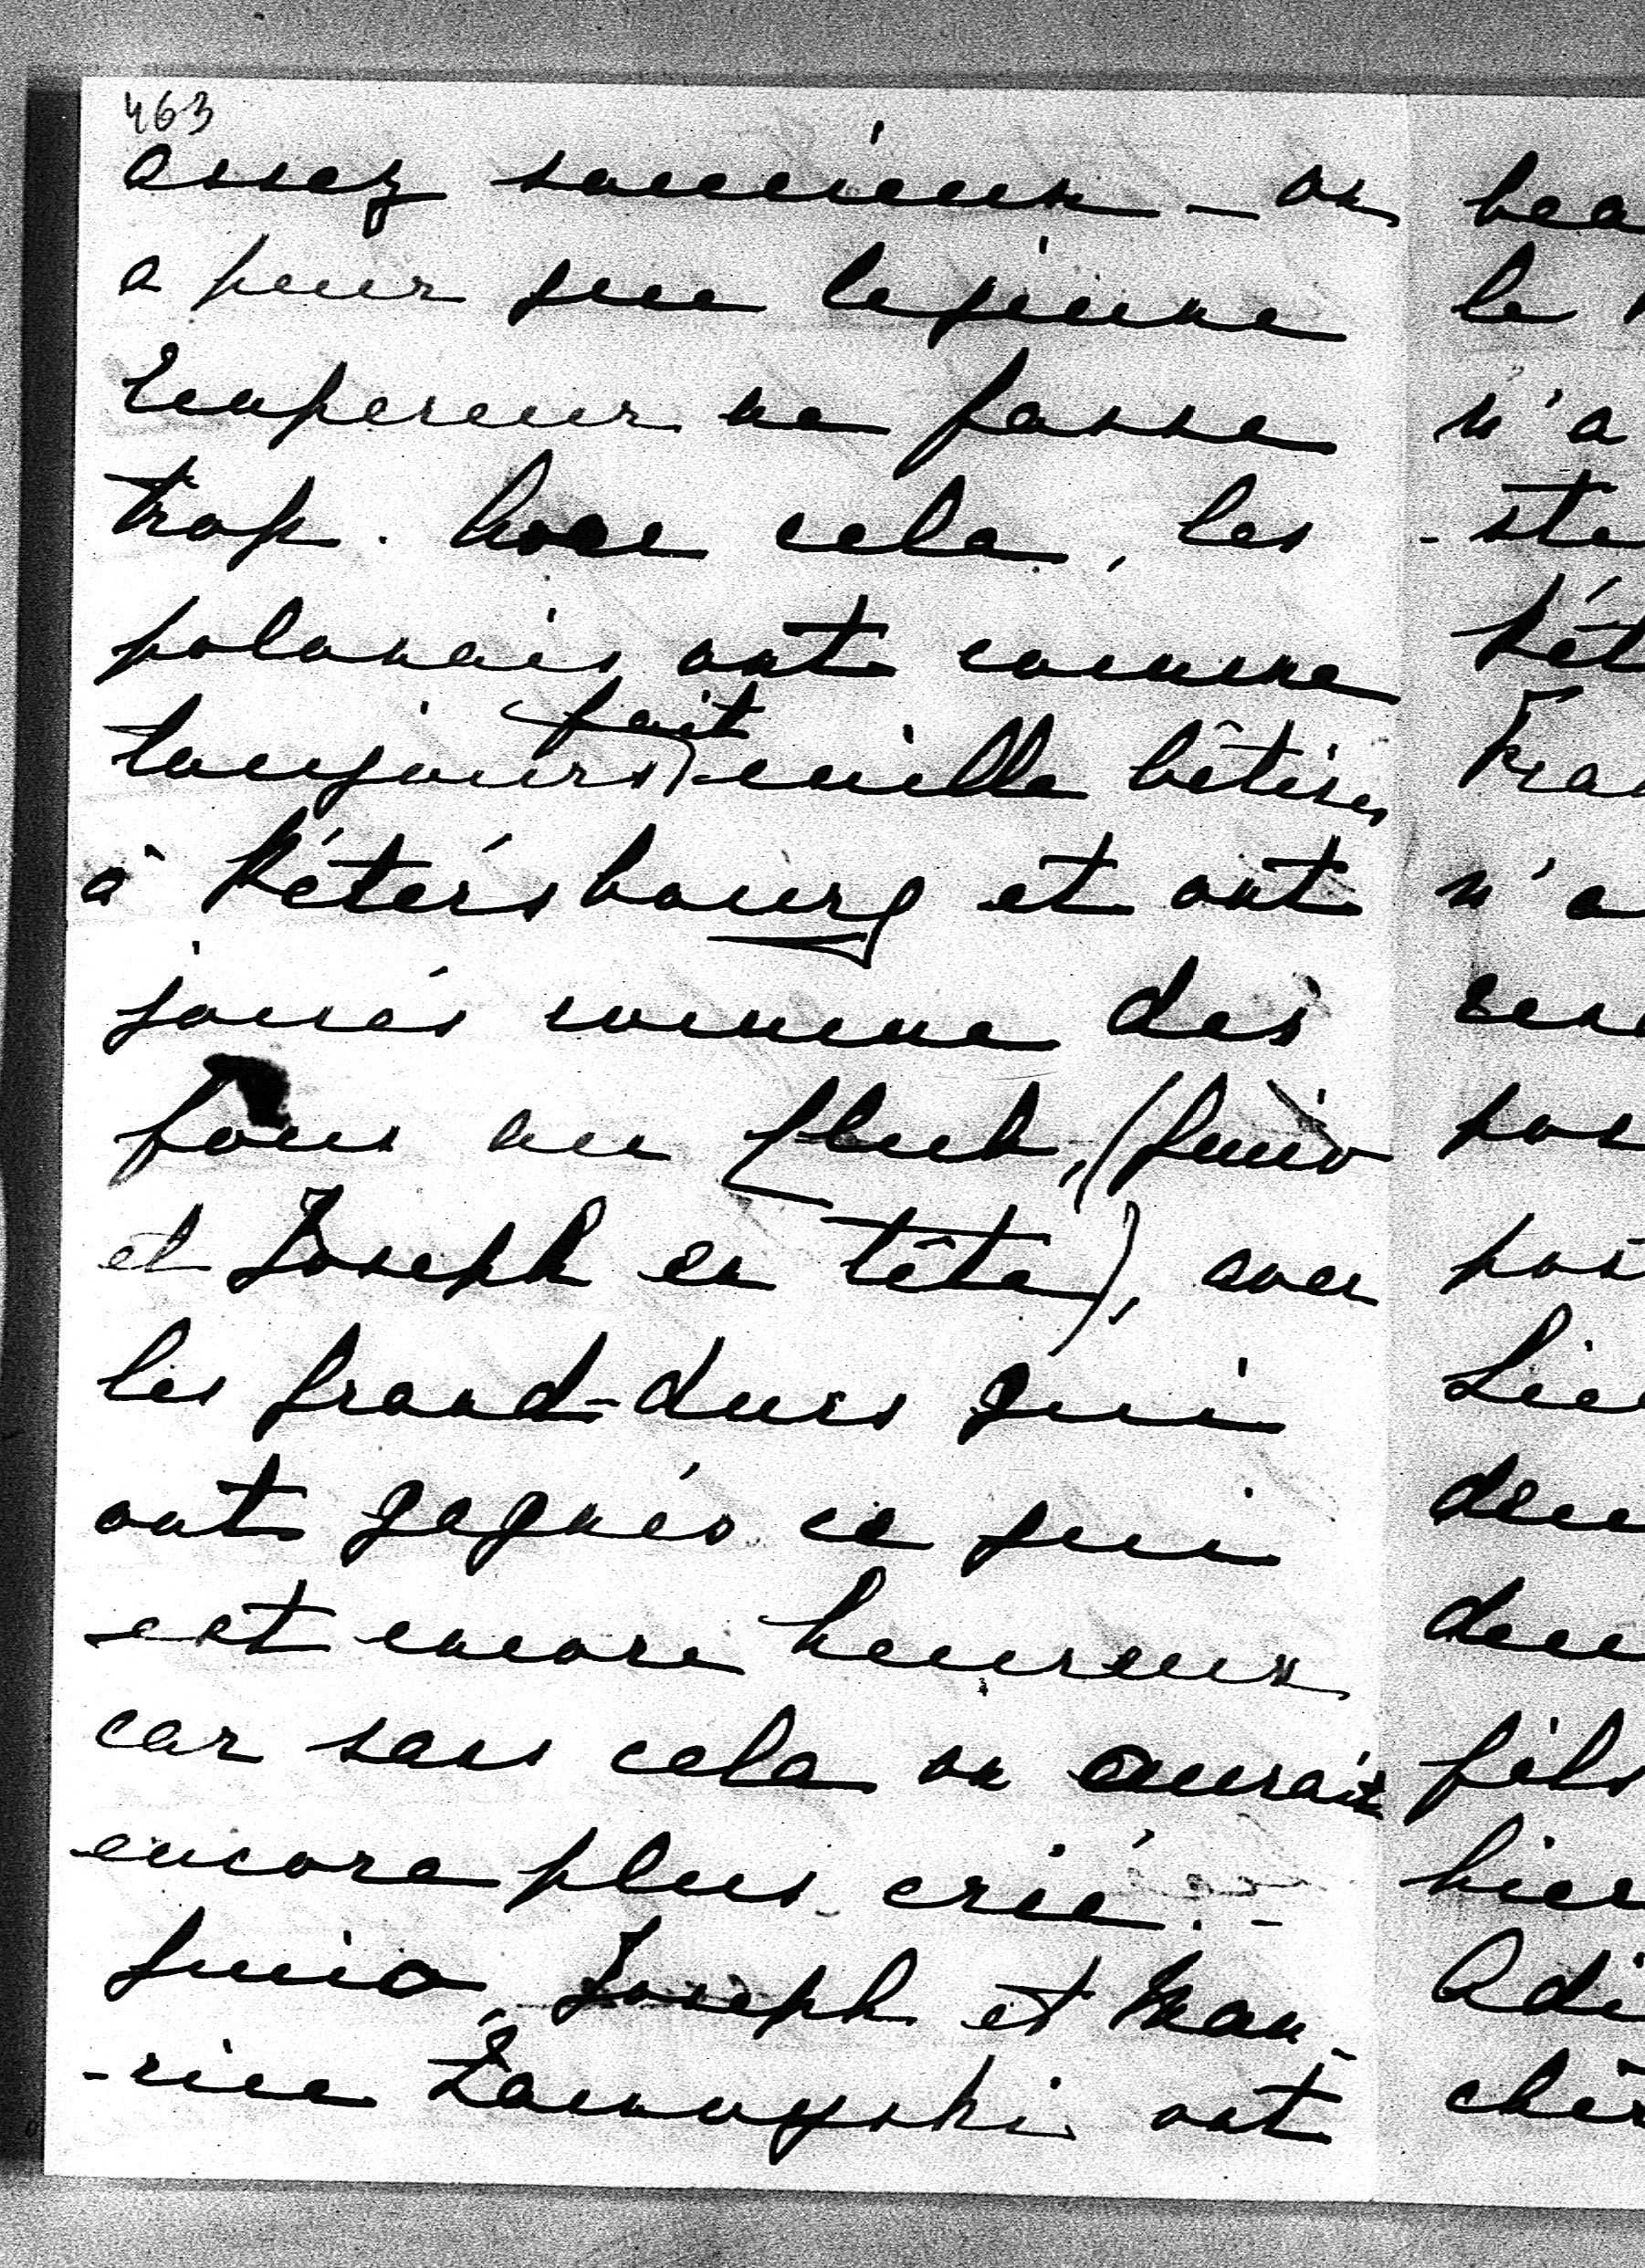 463
assez soucieux - on
a peur que le jeune
Empereur ne fasse
trop. Avec cela, les
polonais ont comme
toujours fait mille bêtises
à Pétersbourg et ont
joués comme des
fous au Club, (Guio
et Joseph en tête), avec
les Grand-ducs qui
ont gagnés ce qui
est encore heureux
car sans cela on aurait
encore plus crié. -
Guio, Joseph et Mau-
-rice Zamoyski ont
bea
le
n'a
-ste
Pét
Fra
n'a
pas
pas
fils
hier